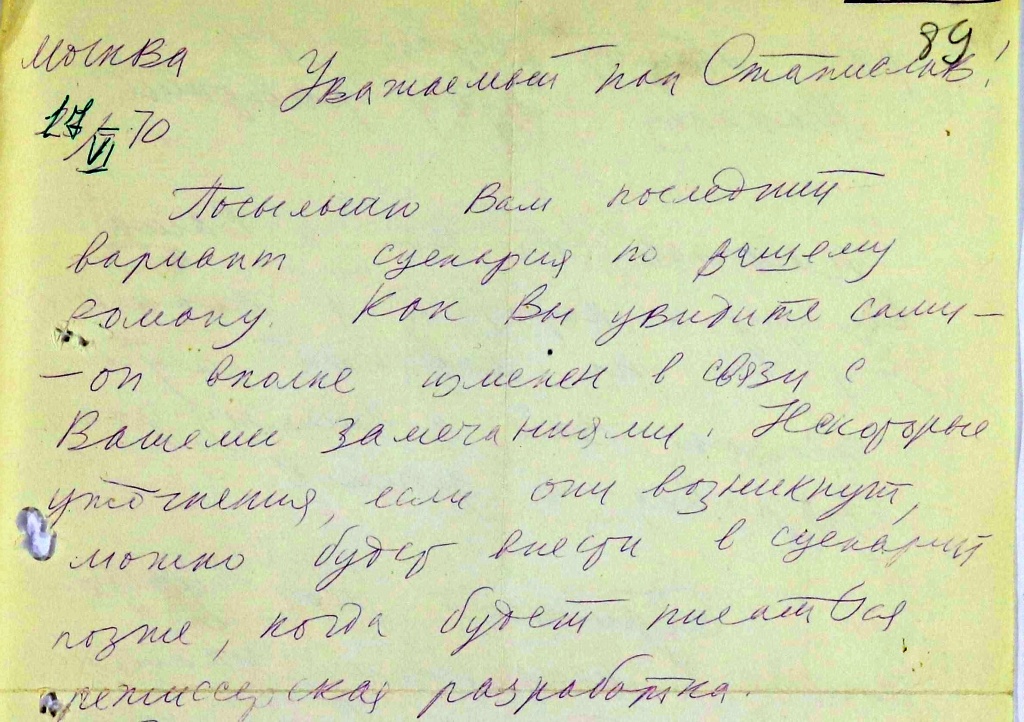 89
Москва Уважаемый пан Станислав!
17/VI 70
Посылаю Вам последний
вариант сценария по вашему
роману. Как Вы увидите сами –
– он вполне изменен в связи с
Вашеми замечаниями. Некоторые
уточнения, если они возникнут,
можно будет внести в сценарий
позже, когда будет писаться
режиссерская разработка.